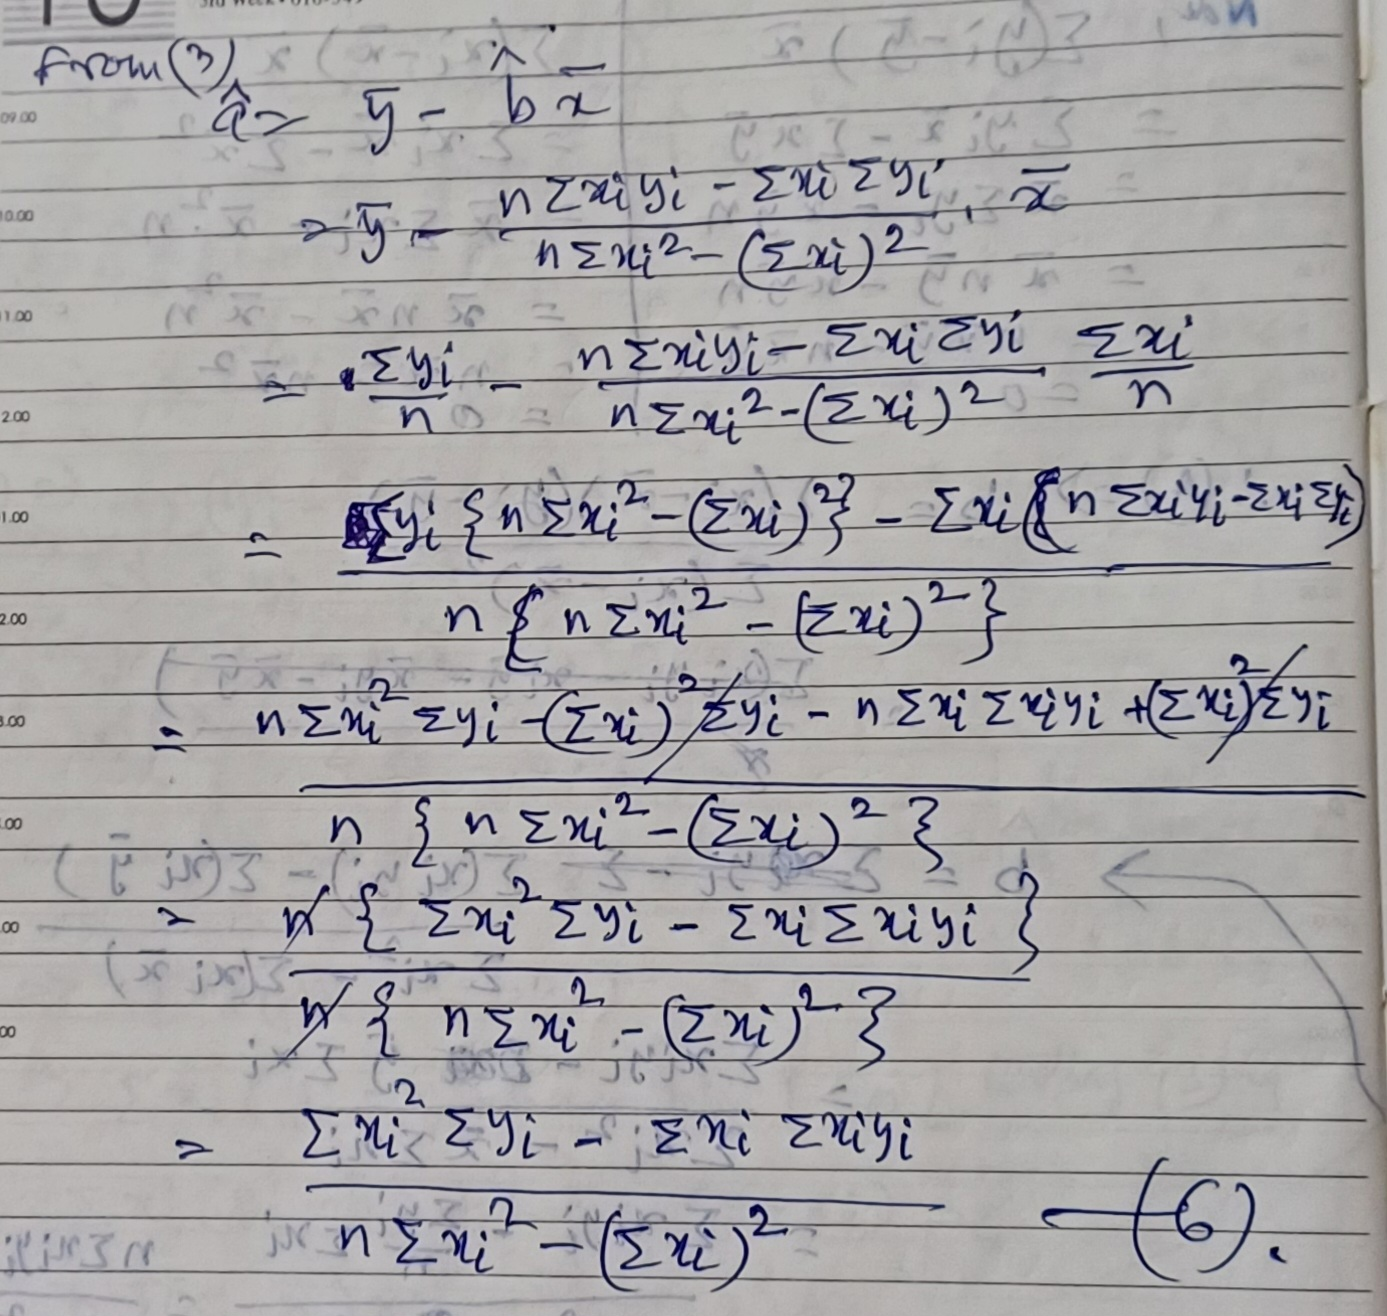 3rd Week • 010-349
From (3)
â = ȳ - b̂ x̄
= ȳ - (n Σxᵢyᵢ - Σxᵢ Σyᵢ) / (n Σxᵢ² - (Σxᵢ)²) . x̄
= Σyᵢ / n - (n Σxᵢyᵢ - Σxᵢ Σyᵢ) / (n Σxᵢ² - (Σxᵢ)²) Σxᵢ / n
= Σyᵢ {n Σxᵢ² - (Σxᵢ)²} - Σxᵢ (n Σxᵢyᵢ - Σxᵢ Σyᵢ)
n {n Σxᵢ² - (Σxᵢ)²}
= n Σxᵢ² Σyᵢ - (Σxᵢ)² Σyᵢ - n Σxᵢ Σxᵢyᵢ + (Σxᵢ)² Σyᵢ
n {n Σxᵢ² - (Σxᵢ)²}
= n {Σxᵢ² Σyᵢ - Σxᵢ Σxᵢyᵢ}
n {n Σxᵢ² - (Σxᵢ)²}
= Σxᵢ² Σyᵢ - Σxᵢ Σxᵢyᵢ
n Σxᵢ² - (Σxᵢ)² —(6).
09.00
10.00
11.00